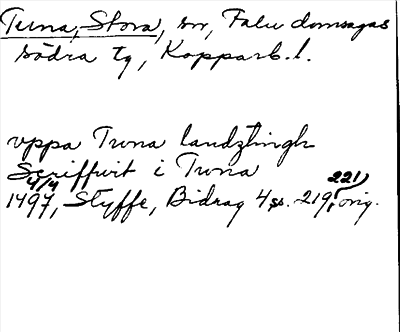 Tuna, Stora, sn, Falu domsagas
södra tg, Kopparb. l.
vppa Twna landztingh
Scriffwit i Twna
4/4 221)
1497, Styffe, Bidrag 4 s. 219, orig.